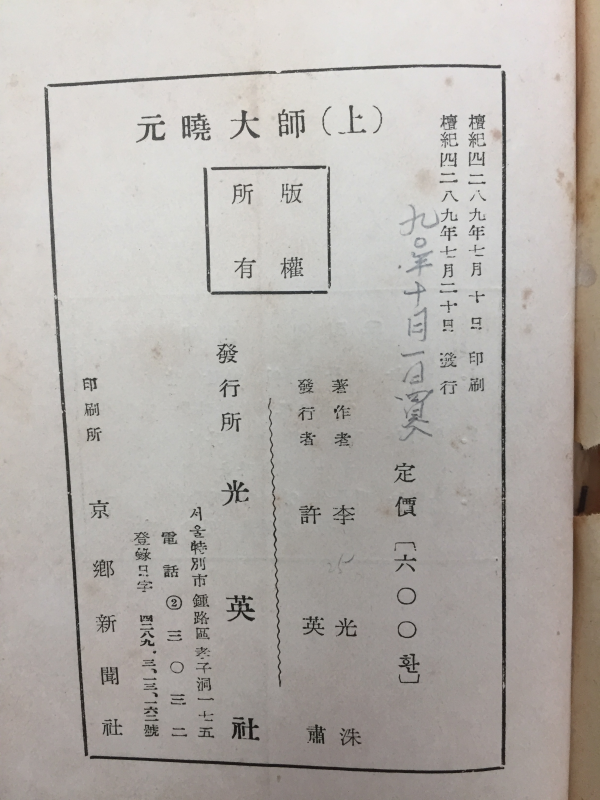 元曉大師(上)
版權
所有
檀紀四二八九年七月 十日 印刷
檀紀四二八九年七月二十日 發行
九〇年十月一日
定價〔六〇〇환〕
著作者 李光洙
發行者 許英肅
發行所 光英社
서울特別市鍾路區孝子洞一七五
電話②三〇三二
登錄日字 四二八九.三.一三.一六二號
印刷所 京鄕新聞社